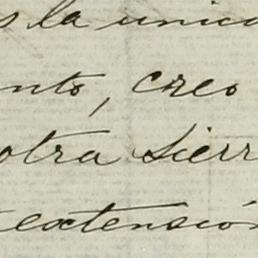 s la unica
nto, creo
otra sierr
extensión